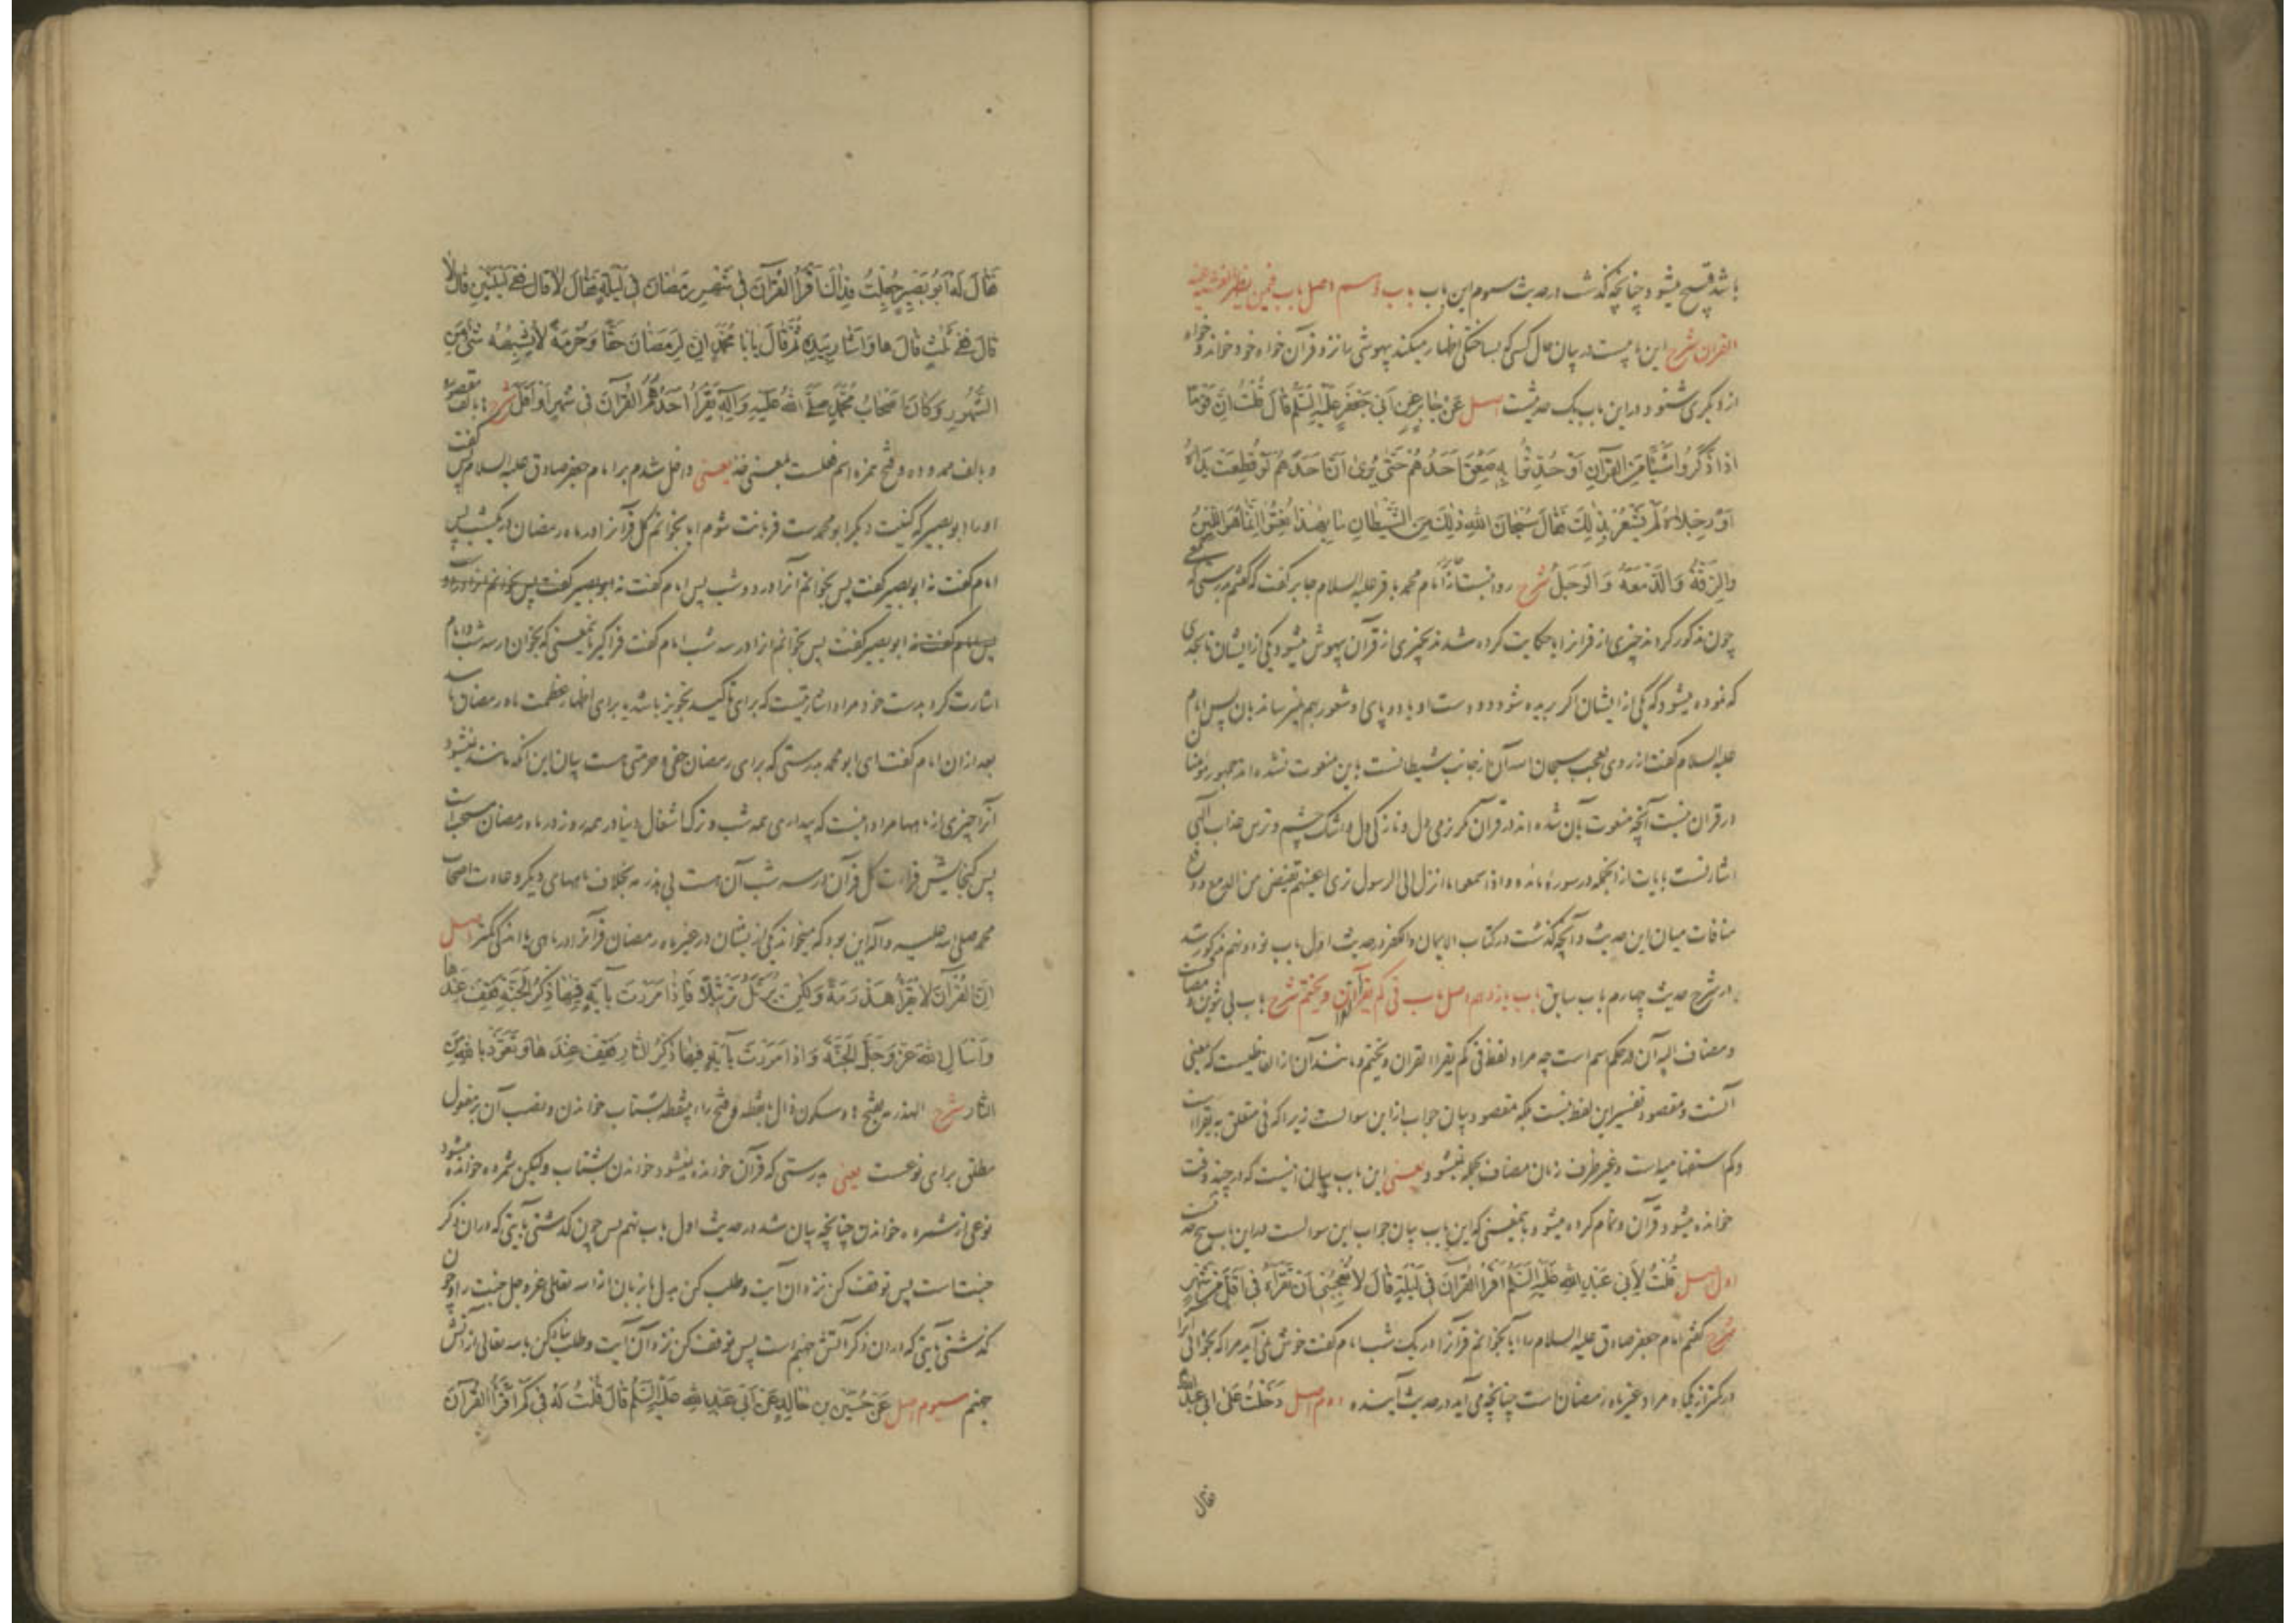 باشد قبیح میشود چنانچه گذشت در حدیث سیوم این باب باب دهم اصل باب فیمن یظهر الغشیه عند
القران شرح این باب در بیان حال کسی که بساختگی اظهار میکند بیهوشی را نزد قرآن خواه خود خواند و خواه
از دیگری شنود و در این باب یک حدیثست اصل عَنْ جَابِرٍ عَنْ اَبِی جَعْفَرٍ عَلَیْهِ السَّلَمُ قَالَ قُلْتُ اِنَّ قَوْمًا
اِذَا ذَکَرُوا شَیْئًا مِنَ الْقُرْآنِ اَوْ حُدِّثُوا بِهِ صَعِقَ اَحَدُهُمْ حَتَّی یُرَی اَنَّ اَحَدَهُمْ لَوْ قُطِعَتْ یَدَاهُ
اَوْ رِجْلَاهُ لَمْ یَشْعُرْ بِذَلِکَ فَقَالَ سُبْحَانَ اللهِ ذَلِکَ مِنَ الشَّیْطَانِ مَا بِهَذَا نُعِتُوا اِنَّمَا هُوَ اللِّینُ
وَالرِّقَّةُ وَالدَّمْعَةُ وَالْوَجَلُ شرح روایتست از امام محمد باقر علیه السلام جابر گفت که گفتم بدرستی که جمعی
چون مذکور کردند چیزی از قرانرا یا حکایت کرده شدند بچیزی از قرآن بیهوش میشود یکی از ایشان تا بحدی
که نموده میشود که یکی از ایشان اگر بریده شود دو دست او یا دو پای او شعور بهم نمیرساند بآن پس امام
علیه السلام گفت از روی تعجب سبحان الله آن از جانب شیطانست باین منعوت نشده اند جمهور مؤمنان
در قران نیست آنچه منعوت بآن شده اند در قرآن مگر نرمی دل و نازکی دل و اشک چشم و ترس عذاب الهی
اشارتست بآیات از انجمله در سورهٔ مائده و اذا سمعوا ما انزل الی الرسول تری اعینهم تفیض من الدمع و رفع
منافات میان این حدیث و آنچه گذشت در کتاب الایمان و الکفر در حدیث اول باب نود و نهم مذکور شد
در شرح حدیث چهارم باب سابق باب یازدهم اصل باب فی کم یقرأ القران و یختم شرح باب بی تنوین و مضافست
و مضاف الیه آن در حکم اسم است چه مراد لفظ فی کم یقرا القران و یختم و مانند آن از الفاظیست که بمعنی
آنست و مقصود تفسیر این لفظ نیست بلکه مقصود بیان جواب از این سوالست زیرا که فی متعلق به یقرا است
و کم استفهامیه است و غیر ظرف زمان مضاف بجمله نمیشود یعنی این باب بیان اینست که در چند وقت
خوانده میشود قرآن و تمام کرده میشود بمعنی که این باب بیان جواب این سوالست در این باب پنج حدیثست
اول اصل قُلْتُ لِاَبِی عَبْدِ اللهِ عَلَیْهِ السَّلَمُ اَقْرَأُ الْقُرْآنَ فِی لَیْلَةٍ قَالَ لَا یُعْجِبُنِی اَنْ تَقْرَأَهُ فِی اَقَلَّ مِنْ شَهْرٍ
شرح گفتم امام جعفر صادق علیه السلام را آیا بخوانم قرآنرا در یک شب امام گفت خوش نمی آید مرا که بخوانی آنرا
در کمتر از یکماه مراد غیر ماه رمضان است چنانچه می آید در حدیث آینده دوم اصل دَخَلْتُ عَلَی اَبِی عَبْدِ اللهِ
فقال
فَقَالَ لَهُ اَبُو بَصِیرٍ جُعِلْتُ فِدَاکَ اَقْرَأُ الْقُرْآنَ فِی شَهْرِ رَمَضَانَ فِی لَیْلَةٍ فَقَالَ لَا قَالَ فَفِی لَیْلَتَیْنِ قَالَ لَا
قَالَ فَفِی ثَلثٍ قَالَ هَا وَاَشَارَ بِیَدِهِ ثُمَّ قَالَ یَا بَا مُحَمَّدٍ اِنَّ لِرَمَضَانَ حَقًّا وَحُرْمَةً لَا یُشْبِهُهُ شَیْءٌ مِنَ
الشُّهُورِ وَکَانَ اَصْحَابُ مُحَمَّدٍ صَلَّی اللهُ عَلَیْهِ وَآلِهِ یَقْرَأُ اَحَدُهُمُ الْقُرْآنَ فِی شَهْرٍ اَوْ اَقَلَّ شرح ها بالف مقصوره
و بالف ممدوده و فتح همزه اسم فعلست بمعنی خذ یعنی داخل شدم بر امام جعفر صادق علیه السلام پس گفت
او را ابو بصیر که کنیت دیگر ابو محمدست قربانت شوم آیا بخوانم کل قرآنرا در ماه رمضان در یکشب پس
امام گفت نه ابو بصیر گفت پس بخوانم آنرا در دو شب پس امام گفت نه ابو بصیر گفت پس بخوانم انرا در دو
پس امام گفت نه ابو بصیر گفت پس بخوانم انرا در سه شب امام گفت فراگیر بمعنی که بخوان در سه شب و امام
اشارت کرد بدست خود مراد اشارتیست که برای تاکید تجویز باشد یا برای اظهار عظمت ماه رمضان باشد
بعد ازان امام گفت ای ابو محمد بدرستی که برای رمضان حقی و حرمتی هست بیان این آنکه مانند نمیشود
آنرا چیزی از ماهها مراد اینست که بیداری همه شب و ترک اشغال دنیا در همه روز در ماه رمضان مستحب است
پس گنجایش قرائت کل قرآن در سه شب آن هست بی هذرمه بخلاف ماههای دیگر و عادت اصحاب
محمد صلی الله علیه و آله این بود که میخواند یکی از یشان در غیر ماه رمضان قرآنرا در ماهی یا اندکی کمتر اصل
اِنَّ الْقُرْآنَ لَا یُقْرَأُ هَذْرَمَةً وَلَکِنْ یُرَتَّلُ تَرْتِیلًا فَاِذَا مَرَرْتَ بِآیَةٍ فِیهَا ذِکْرُ الْجَنَّةِ فَقِفْ عِنْدَهَا
وَاسْأَلِ اللهَ عَزَّ وَجَلَّ الْجَنَّةَ وَاِذَا مَرَرْتَ بِآیَةٍ فِیهَا ذِکْرُ النَّارِ فَقِفْ عِنْدَهَا وَتَعَوَّذْ بِاللهِ مِنَ
النَّارِ شرح الهذرمه بفتح ها و سکون ذال بانقطه و فتح راء بینقطه بشتاب خواندن و نصب آن بر مفعول
مطلق برای نوعست یعنی بدرستی که قرآن خوانده نمیشود خواندن بشتاب و لیکن شمرده خوانده میشود
نوعی از شمرده خواندن چنانچه بیان شد در حدیث اول باب نهم پس چون گذشتی بآیتی که دران ذکر
جنت است پس توقف کن نزد ان آیت و طلب کن بدل یا زبان از الله تعالی عز و جل جنت را و چون
گذشتی بآیتی که دران ذکر آتش جهنم است پس توقف کن نزد آن آیت و طلب پناه کن بالله تعالی از آتش
جهنم سیوم اصل عَنْ حُسَیْنِ بْنِ خَالِدٍ عَنْ اَبِی عَبْدِ اللهِ عَلَیْهِ السَّلَمُ قَالَ قُلْتُ لَهُ فِی کَمْ اَقْرَأُ الْقُرْآنَ